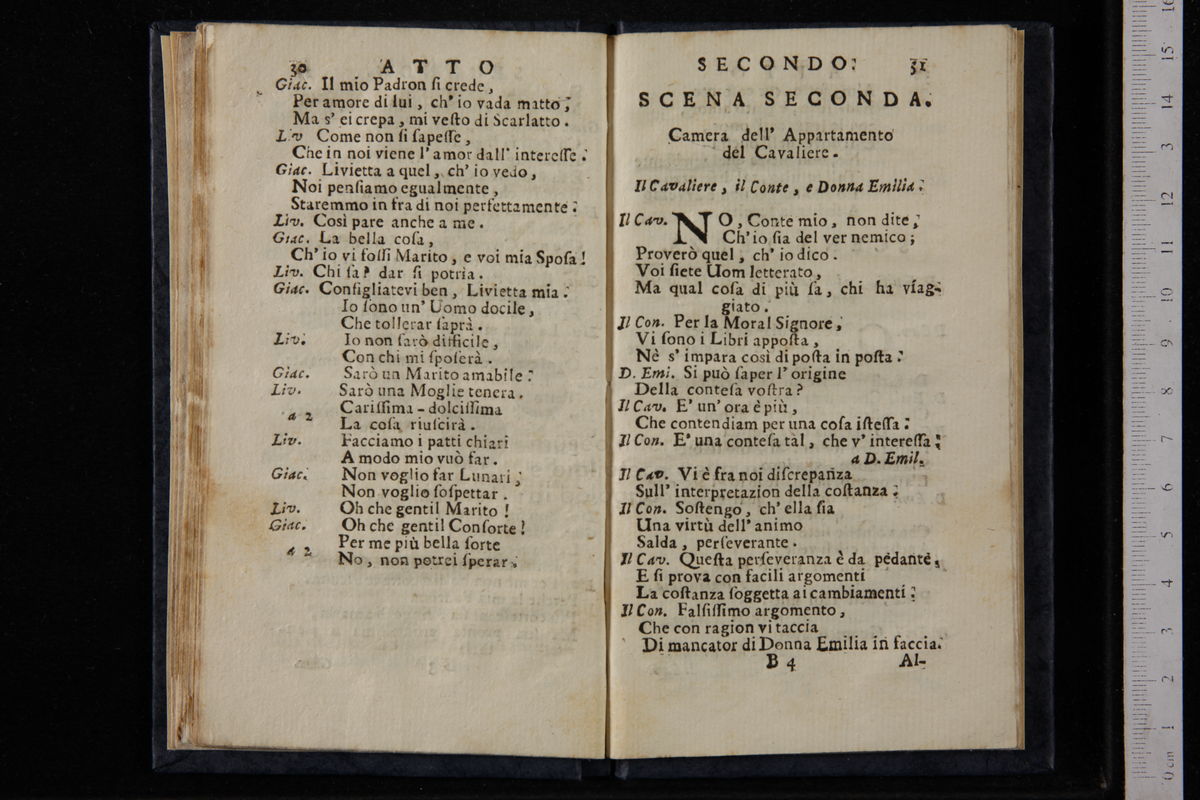 30 ATTO
Giac. Il mio Padron ſi crede,
Per amore di lui, ch' io vada matto;
Ma s' ei crepa, mi veſto di Scarlatto.
Liv Come non ſi ſapeſſe,
Che in noi viene l' amor dall' intereſſe.
Giac. Livietta a quel, ch' io vedo,
Noi penſiamo egualmente,
Staremmo in fra di noi perfettamente.
Liv. Così pare anche a me.
Giac. La bella coſa,
Ch' io vi foſſi Marito, e voi mia Spoſa!
Liv. Chi ſà? dar ſi potria.
Giac. Conſigliatevi ben, Livietta mia.
Io ſono un' Uomo docile,
Che tollerar ſaprà.
Liv. Io non ſarò difficile,
Con chi mi ſpoſerà.
Giac. Sarò un Marito amabile.
Liv. Sarò una Moglie tenera.
a 2 Cariſſima - dolciſſima
La coſa riuſcirà.
Liv. Facciamo i patti chiari
A modo mio vuò far.
Giac. Non voglio far Lunari;
Non voglio ſoſpettar.
Liv. Oh che gentil Marito!
Giac. Oh che gentil Conſorte!
a 2 Per me più bella ſorte
No, non potrei ſperar.
SECONDO. 31
SCENA SECONDA.
Camera dell' Appartamento
del Cavaliere.
Il Cavaliere, il Conte, e Donna Emilia.
Il Cav. NO, Conte mio, non dite,
Ch' io ſia del ver nemico;
Proverò quel, ch' io dico.
Voi ſiete Uom letterato,
Ma qual coſa di più ſa, chi ha viag-
giato.
Il Con. Per la Moral Signore,
Vi ſono i Libri appoſta,
Nè s' impara così di poſta in poſta.
D. Emi. Si può ſaper l' origine
Della conteſa voſtra?
Il Cav. E' un' ora è più,
Che contendiam per una coſa iſteſſa.
Il Con. E' una conteſa tal, che v' intereſſa.
a D. Emil.
Il Cav. Vi è fra noi diſcrepanza
Sull' interpretazion della coſtanza.
Il Con. Soſtengo, ch' ella ſia
Una virtù dell' animo
Salda, perſeverante.
Il Cav. Queſta perſeveranza è da pedante,
E ſi prova con facili argomenti
La coſtanza ſoggetta ai cambiamenti.
Il Con. Falſiſſimo argomento,
Che con ragion vi taccia
Di mancator di Donna Emilia in faccia.
B 4 Al-
0 cm 1 2 3 4 5 6 7 8 9 10 11 12 3 14 15 16